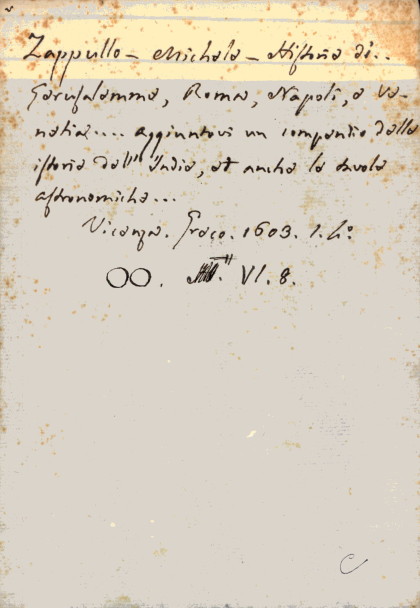 Zappullo - Michele - Historie di..
Gerusalemme, Roma, Napoli, e Ve-
netia.... aggiuntovi un compendio delle
istorie dell' Indie, et anche le tavole
astronomiche...
Vicenza. Greco. 1603. 1. 4º
OO. VI. 8.
C